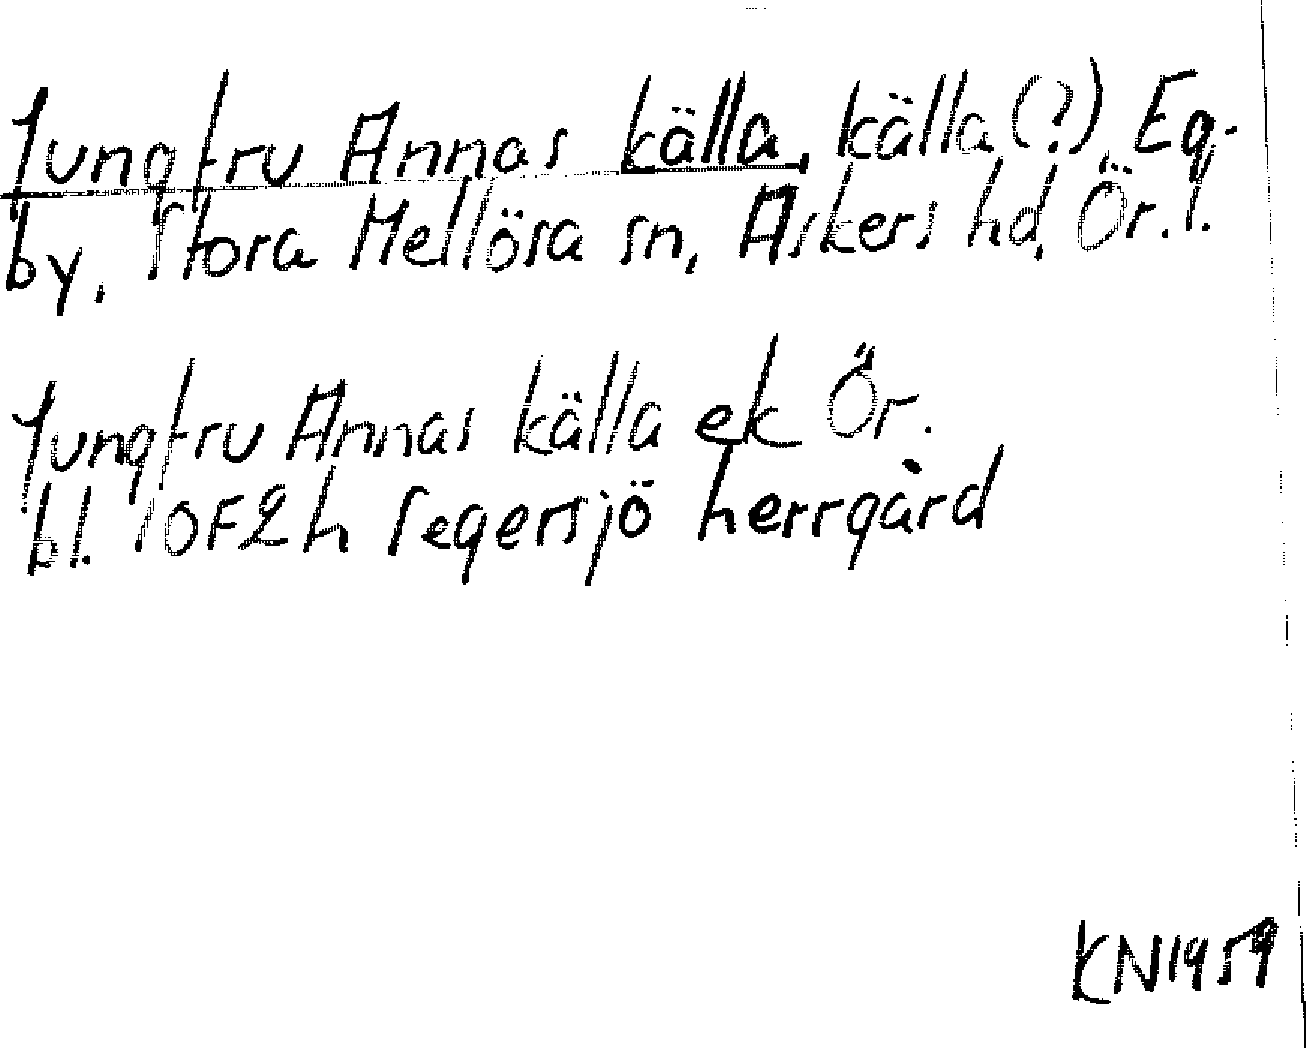 Jungfru Annas källa, källa(?), Eg-
by, Stora Mellösa sn, Askers hd, Ör.l.
Jungfru Annas källa ek Ör.
bl. 10F2h Segersjö herrgård
KN1959